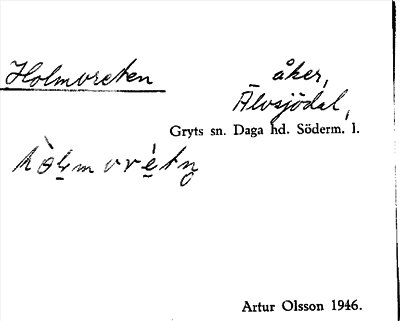 Holmvreten åker,
Älvsjödal,
Gryts sn. Daga hd. Söderm. l.
Artur Olsson 1946.